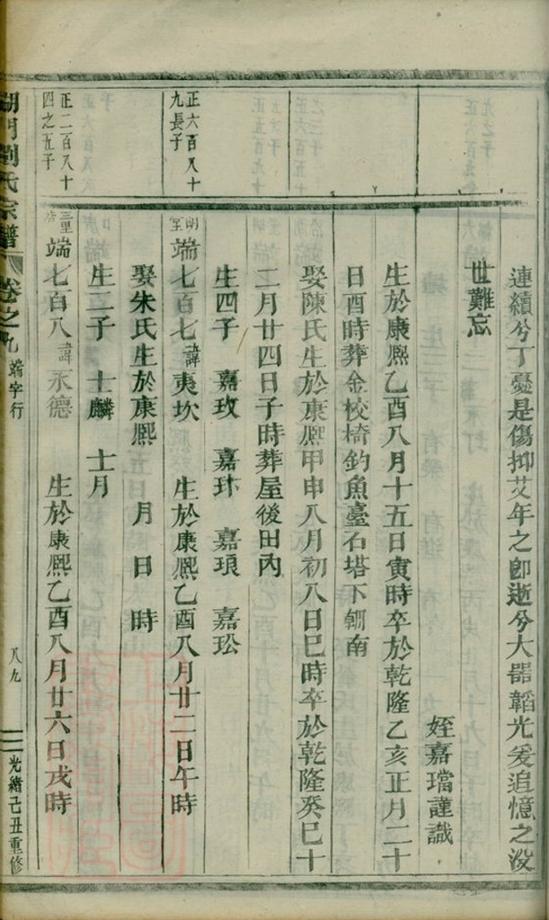 連續兮丁憂是傷抑艾年之卽逝兮大器韜光爰追憶之沒
世難忘
姪嘉璫謹識
生於康熙乙酉八月十五日寅時卒於乾隆乙亥正月二十
日酉時葬金校椅釣魚臺石塔下朝南
娶陳氏生於康熙甲申八月初八日巳時卒於乾隆癸巳十
二月廿四日子時葬屋後田內
生四子 嘉玫 嘉珎 嘉琅 嘉玜
正六百八十
九長子
明堂 端七百七 諱夷坎 生於康熙乙酉八月廿二日午時
娶朱氏生於康熙 月 日 時
生二子 士麟 士月
正二百八十
四之五子
端七百八 諱永德 生於康熙乙酉八月廿六日戌時
湖門劉氏宗譜 卷之九 端字行 八九 光緒己丑重修